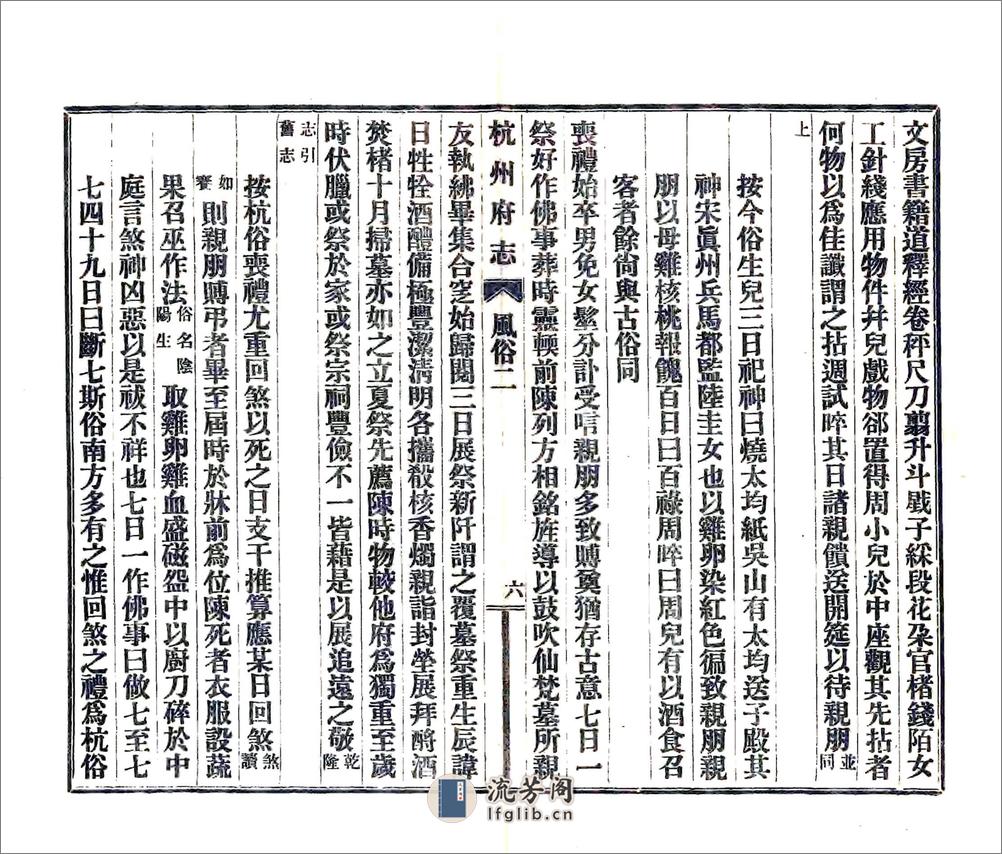 文房書籍道釋經卷秤尺刀翦升斗戥子綵段花朶官楮錢陌女
工針綫應用物件幷兒戲物郤置得周小兒於中座觀其先拈者
何物以爲佳讖謂之拈週試晬其日諸親饋送開筵以待親朋並同
上
按今俗生兒三日祀神曰燒太均紙吳山有太均送子殿其
神宋眞州兵馬都監陸圭女也以雞卵染紅色徧致親朋親
朋以母雞核桃報餽百日曰百祿周晬曰周兒有以酒食召
客者餘尙與古俗同
喪禮始卒男免女髽分訃受唁親朋多致賻奠猶存古意七日一
祭好作佛事葬時靈輭前陳列方相銘旌導以鼓吹仙梵墓所親
杭州府志
風俗二
六
友執紼畢集合窆始歸閱三日展祭新阡謂之覆墓祭重生辰諱
日牲牷酒醴備極豐潔淸明各攜殽核香燭親詣封塋展拜酹酒
焚楮十月掃墓亦如之立夏祭先薦陳時物較他府爲獨重至歲
時伏臘或祭於家或祭宗祠豐儉不一皆藉是以展追遠之敬乾隆
志引舊志
按杭俗喪禮尤重回煞以死之日支干推算應某日回煞煞讀
如賽則親朋賻弔者畢至屆時於牀前爲位陳死者衣服設蔬
果召巫作法俗名陰陽生取雞卵雞血盛磁盌中以廚刀碎於中
庭言煞神凶惡以是祓不祥也七日一作佛事曰做七至七
七四十九日曰斷七斯俗南方多有之惟回煞之禮爲杭俗
流芳阁
lfglib.cn